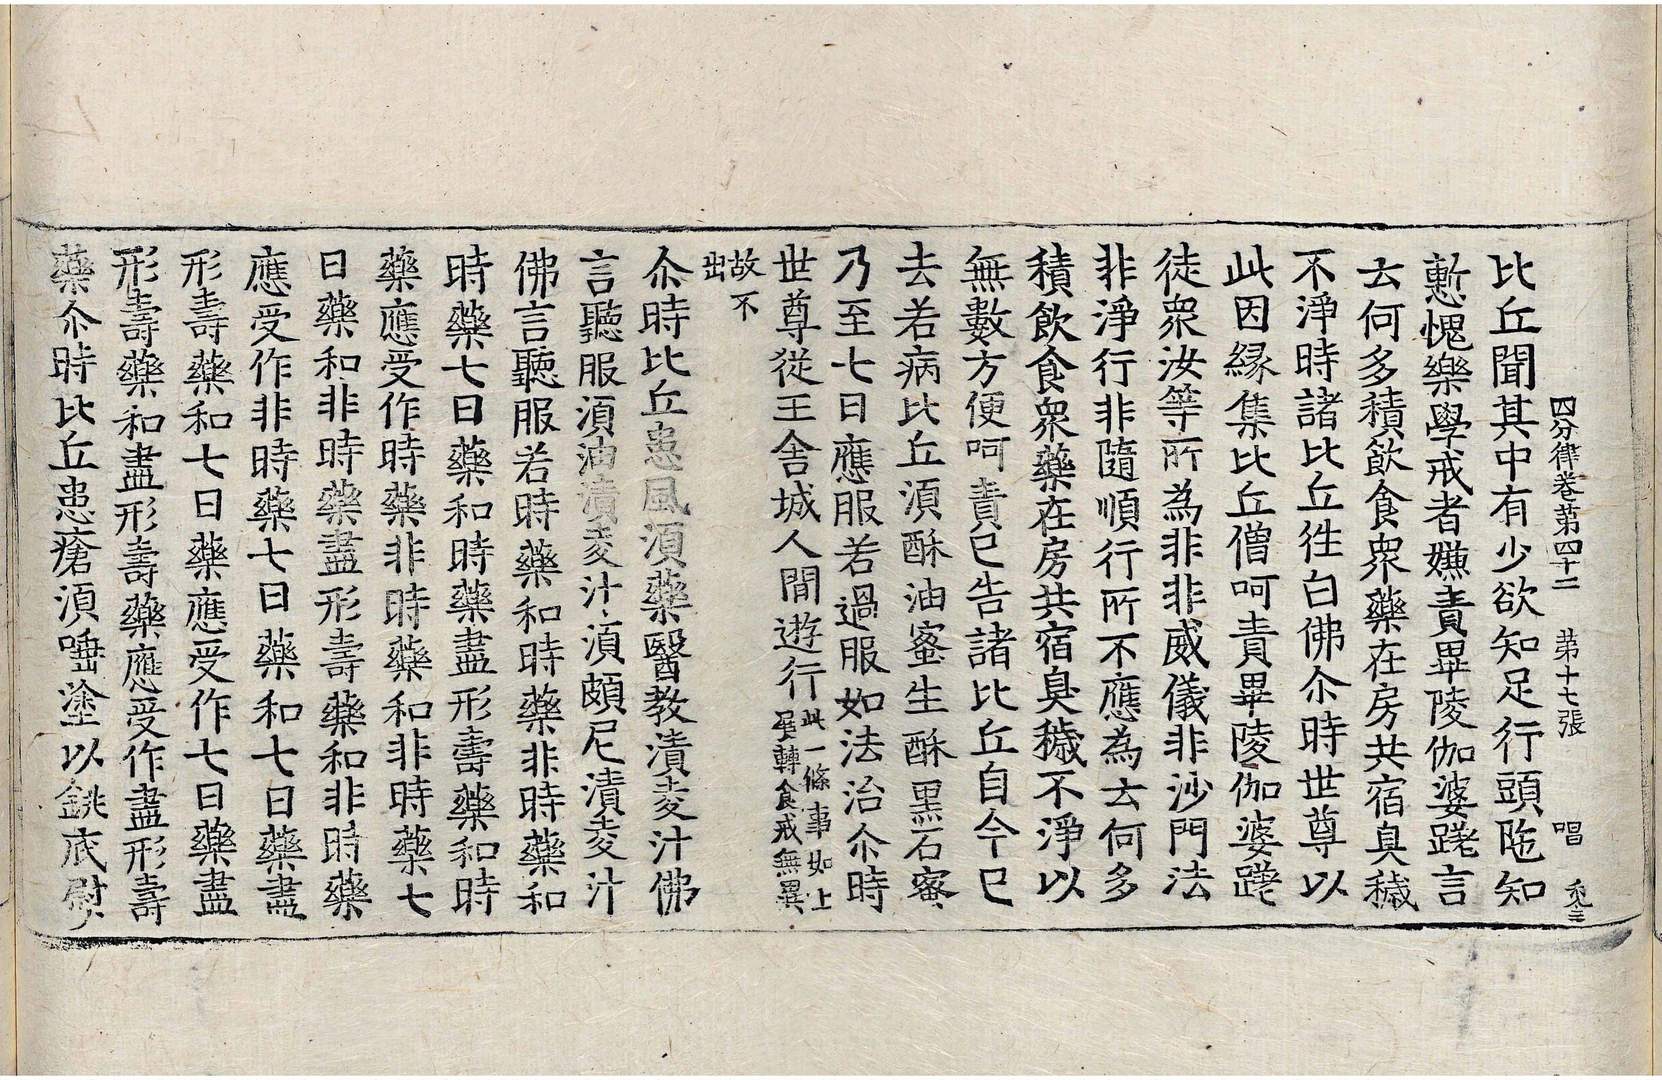 四分律卷第四十二 第十七張 唱
比丘聞其中有少欲知足行頭陁知
慙愧樂學戒者嫌責畢陵伽婆蹉言
云何多積飲食衆藥在房共宿臭穢
不淨時諸比丘徃白佛尒時世尊以
此因縁集比丘僧呵責畢陵伽婆蹉
徒衆汝等所為非非威儀非沙門法
非淨行非隨順行所不應為云何多
積飲食衆藥在房共宿臭穢不淨以
無數方便呵責已告諸比丘自今已
去若病比丘湏酥油蜜生酥黒石蜜
乃至七日應服若過服如法治尒時
世尊從王舍城人間遊行此一條事如上
展轉食戒無異
故不
出
尒時比丘患風湏藥醫教漬麦汁佛
言聽服湏油漬麦汁湏頗尼漬麦汁
佛言聽服若時藥和時藥非時藥和
時藥七日藥和時藥盡形壽藥和時
藥應受作時藥非時藥和非時藥七
日藥和非時藥盡形壽藥和非時藥
應受作非時藥七日藥和七日藥盡
形壽藥和七日藥應受作七日藥盡
形壽藥和盡形壽藥應受作盡形壽
藥尒時比丘患瘡湏唾塗以銚底熨